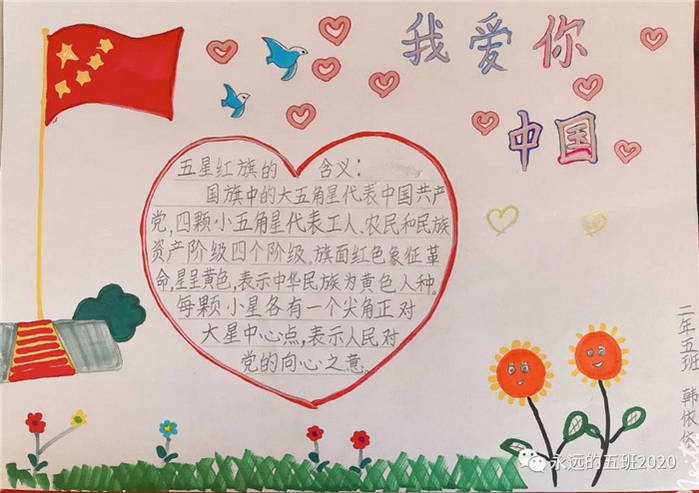 我爱你
中国
五星红旗的 含义:
国旗中的大五角星代表中国共产
党,四颗小五角星代表工人、农民和民族
资产阶级四个阶级。旗面红色象征革
命,星呈黄色,表示中华民族为黄色人种。
每颗小星各有一个尖角正对
大星中心点,表示人民对
党的向心之意。
二年五班 韩依
永远的五班2020